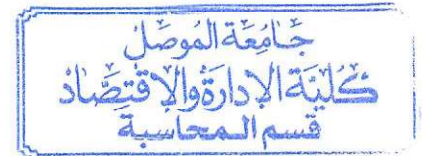 جَامِعَة المُوصَل
كُليَّة الإدارَة والاقتِصَاد
قسم الـمحاسبة